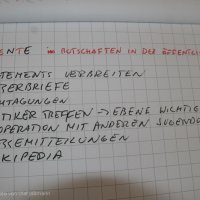 ENTE BOTSCHAFTEN IN DER ÖFFENTLIC
TEMENTS VERBREITEN
ERBRIEFE
TAGUNGEN
TIKER TREFFEN → EBENE WICHTIG
OPERATION MIT ANDEREN JUGENDO
SSEMITTEILUNGEN
KIPEDIA